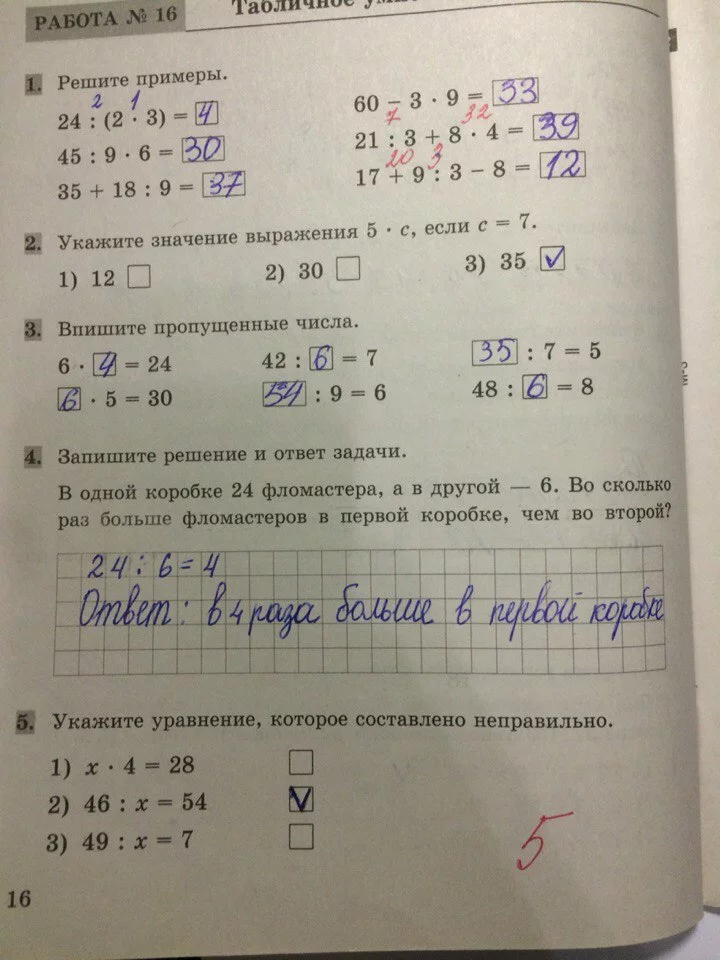 РАБОТА № 16
Табличное
1. Решите примеры.
2 1
24 : (2 · 3) = 4
45 : 9 · 6 = 30
35 + 18 : 9 = 37
60 − 3 · 9 = 33
7 32
21 : 3 + 8 · 4 = 39
20 3
17 + 9 : 3 − 8 = 12
2. Укажите значение выражения 5 · c, если c = 7.
1) 12 ☐ 2) 30 ☐ 3) 35 ☑
3. Впишите пропущенные числа.
6 · 4 = 24 42 : 6 = 7 35 : 7 = 5
6 · 5 = 30 54 : 9 = 6 48 : 6 = 8
4. Запишите решение и ответ задачи.
В одной коробке 24 фломастера, а в другой — 6. Во сколько
раз больше фломастеров в первой коробке, чем во второй?
24 : 6 = 4
Ответ: в 4 раза больше в первой коробке
5. Укажите уравнение, которое составлено неправильно.
1) x · 4 = 28 ☐
2) 46 : x = 54 ☑
3) 49 : x = 7 ☐
5
16